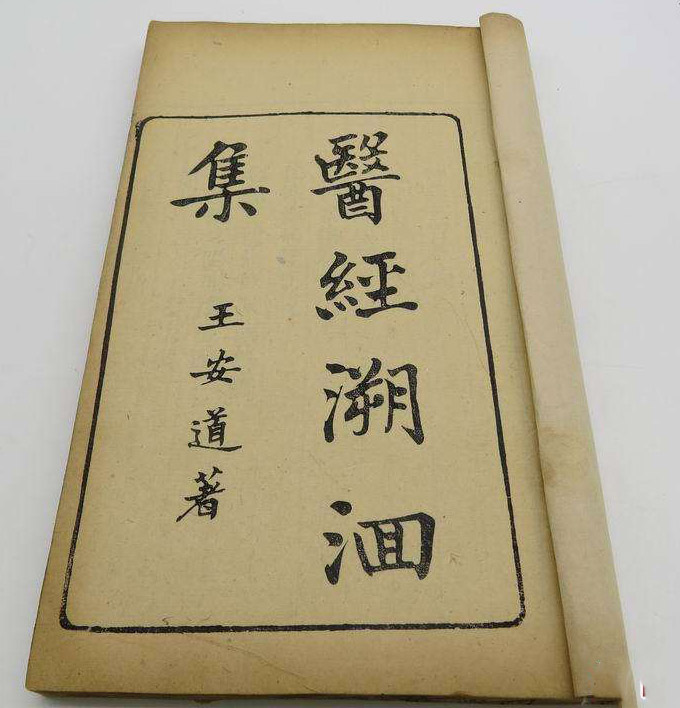 醫經溯洄
集
王安道著